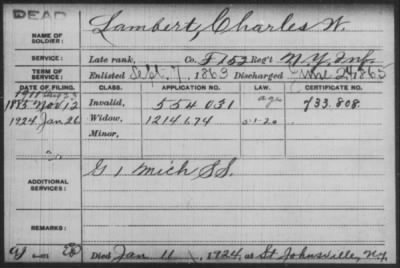 DEAD
NAME OF SOLDIER: Lambert, Charles W.
SERVICE: Late rank, Co. F 152 Reg't N.Y. Inf.
TERM OF SERVICE: Enlisted Sept. 7, 1863 Discharged June 24 1865
DATE OF FILING. CLASS. APPLICATION NO. LAW. CERTIFICATE NO.
1885 Nov 12 Invalid, 554 031 age 733.808
1924 Jan 26 Widow, 1214674 5-1-20
Minor,
ADDITIONAL SERVICES: G 1 Mich S.S.
REMARKS:
Died Jan 11, 1924, at St Johnsville, N.Y.